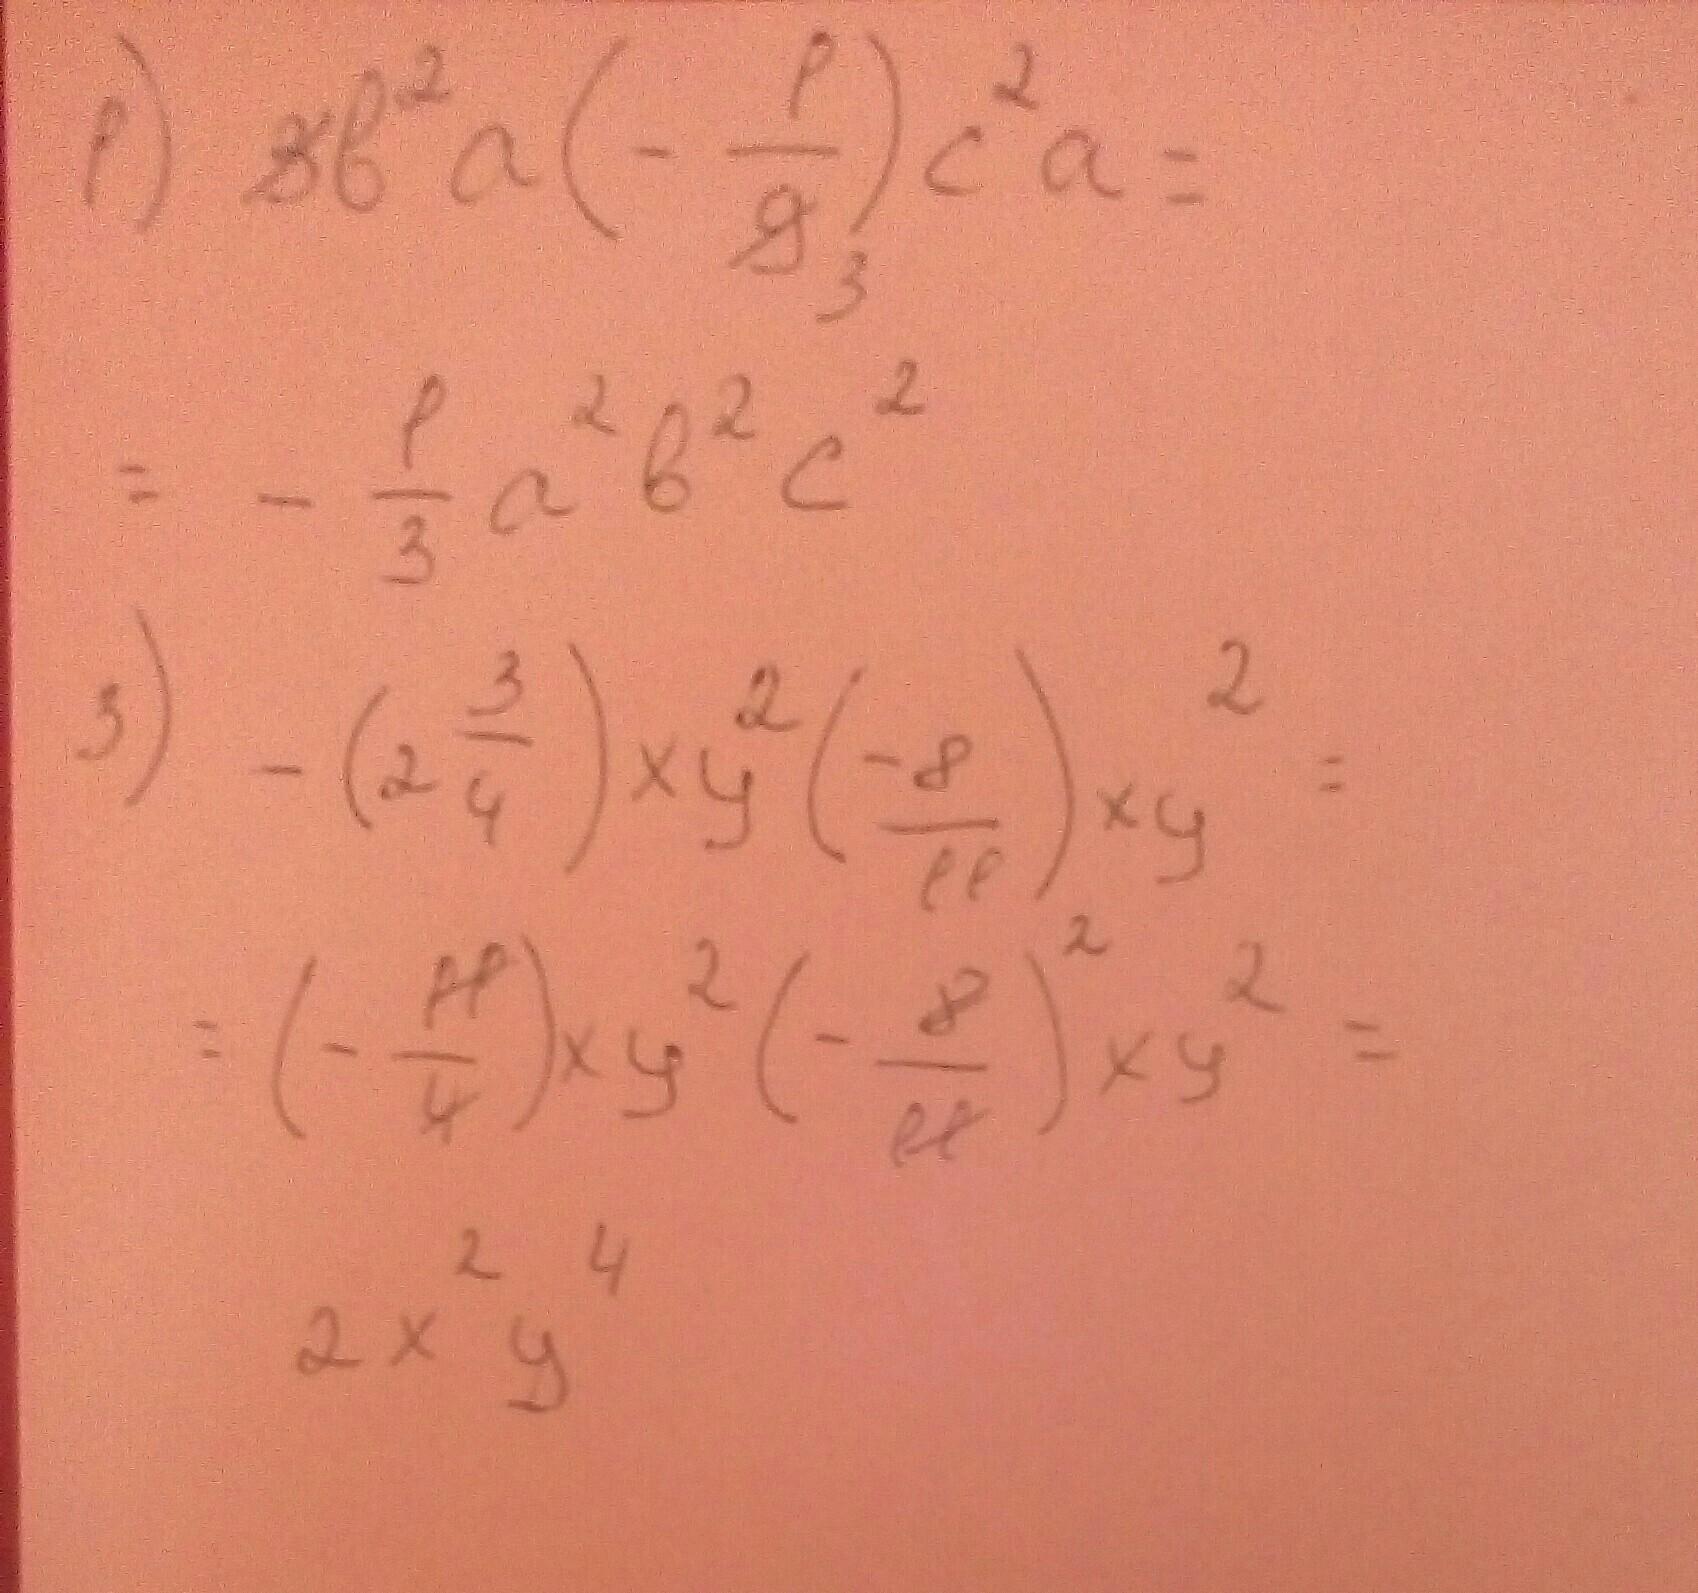 1) 3b²a(-1/9)c²a=
3
= -1/3 a²b²c²
3) -(2 3/4)xy²(-8/11)xy² =
= (-11/4)xy²(-8/11)²xy² =
2x²y⁴